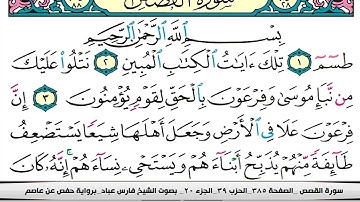 سورة القصص
بِسْمِ ٱللَّهِ ٱلرَّحْمَٰنِ ٱلرَّحِيمِ
طسٓمٓ ١ تِلْكَ ءَايَٰتُ ٱلْكِتَٰبِ ٱلْمُبِينِ ٢ نَتْلُوا۟ عَلَيْكَ
مِن نَّبَإِ مُوسَىٰ وَفِرْعَوْنَ بِٱلْحَقِّ لِقَوْمٍ يُؤْمِنُونَ ٣ إِنَّ
فِرْعَوْنَ عَلَا فِى ٱلْأَرْضِ وَجَعَلَ أَهْلَهَا شِيَعًا يَسْتَضْعِفُ
طَآئِفَةً مِّنْهُمْ يُذَبِّحُ أَبْنَآءَهُمْ وَيَسْتَحْىِۦ نِسَآءَهُمْ إِنَّهُۥ كَانَ
سورة القصص _ الصفحة ٣٨٥_ الحزب ٣٩_ الجزء ٢٠ _ بصوت الشيخ فارس عباد_ برواية حفص عن عاصم